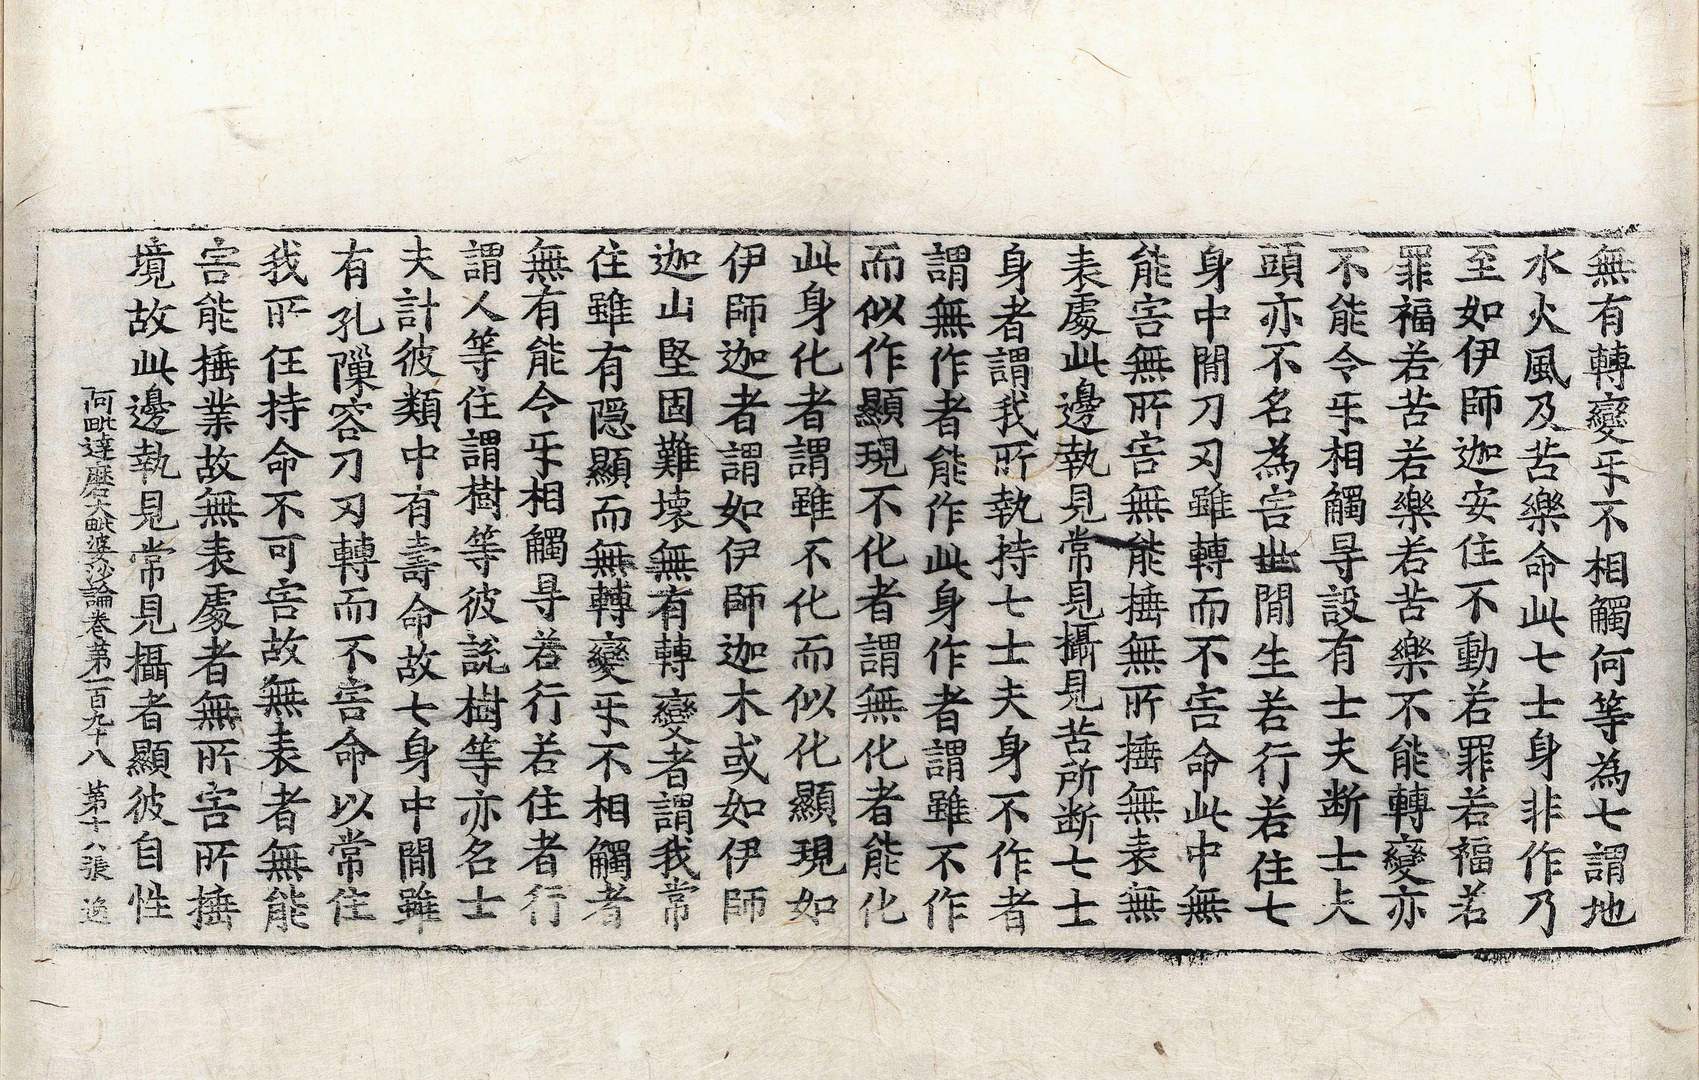 無有轉變㸦不相觸何等為七謂地
水火風及苦樂命此七士身非作乃
至如伊師迦安住不動若罪若福若
罪福若苦若樂若苦樂不能轉變亦
不能令㸦相觸㝵設有士夫断士夫
頭亦不名為害世間生若行若住七
身中間刀刃雖轉而不害命此中無
能害無所害無能捶無所捶無表無
表處此邊執見常見攝見苦所断七士
身者謂我所執持七士夫身不作者
謂無作者能作此身作者謂雖不作
而似作顯現不化者謂無化者能化
此身化者謂雖不化而似化顯現如
伊師迦者謂如伊師迦木或如伊師
迦山堅固難壞無有轉變者謂我常
住雖有隱顯而無轉變㸦不相觸者
無有能令㸦相觸㝵若行若住者行
謂人等住謂樹等彼說樹等亦名士
夫計彼類中有壽命故七身中間雖
有孔隟容刀刃轉而不害命以常住
我所任持命不可害故無表者無能
害能捶業故無表處者無所害所捶
境故此邊執見常見攝者顯彼自性
阿毗達磨大毗婆沙論卷第一百九十八 第十八張 逸